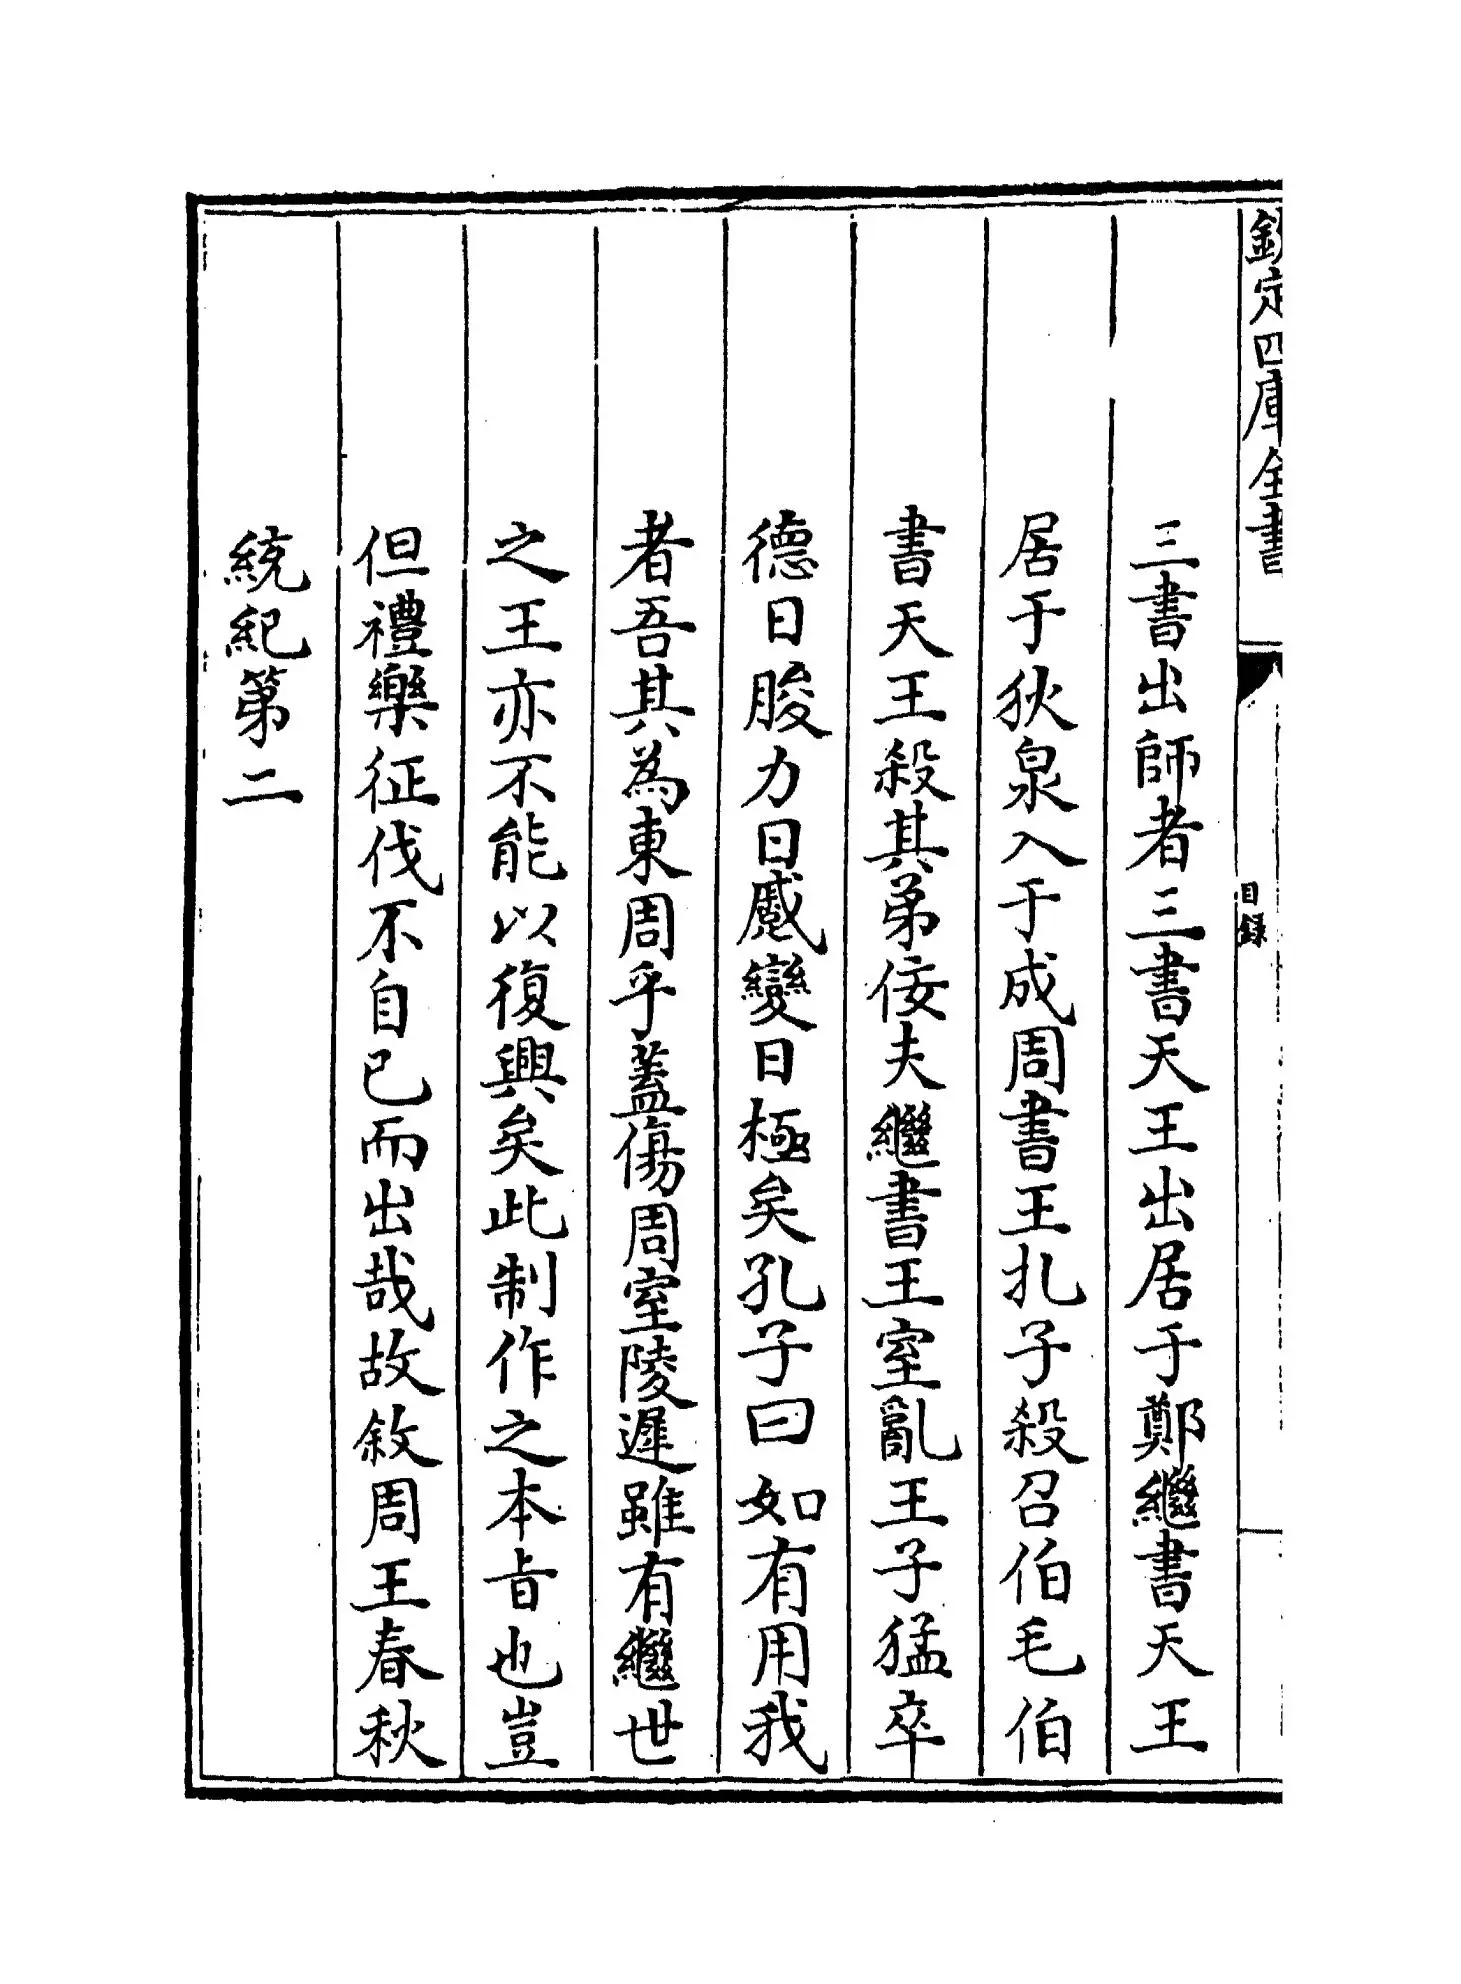 欽定四庫全書
目錄
三書出師者三書天王出居于鄭繼書天王
居于狄泉入于成周書王扎子殺召伯毛伯
書天王殺其弟佞夫繼書王室亂王子猛卒
德日朘力日蹙變日極矣孔子曰如有用我
者吾其為東周乎蓋傷周室陵遲雖有繼世
之王亦不能以復興矣此制作之本旨也豈
但禮樂征伐不自已而出哉故敘周王春秋
統紀第二